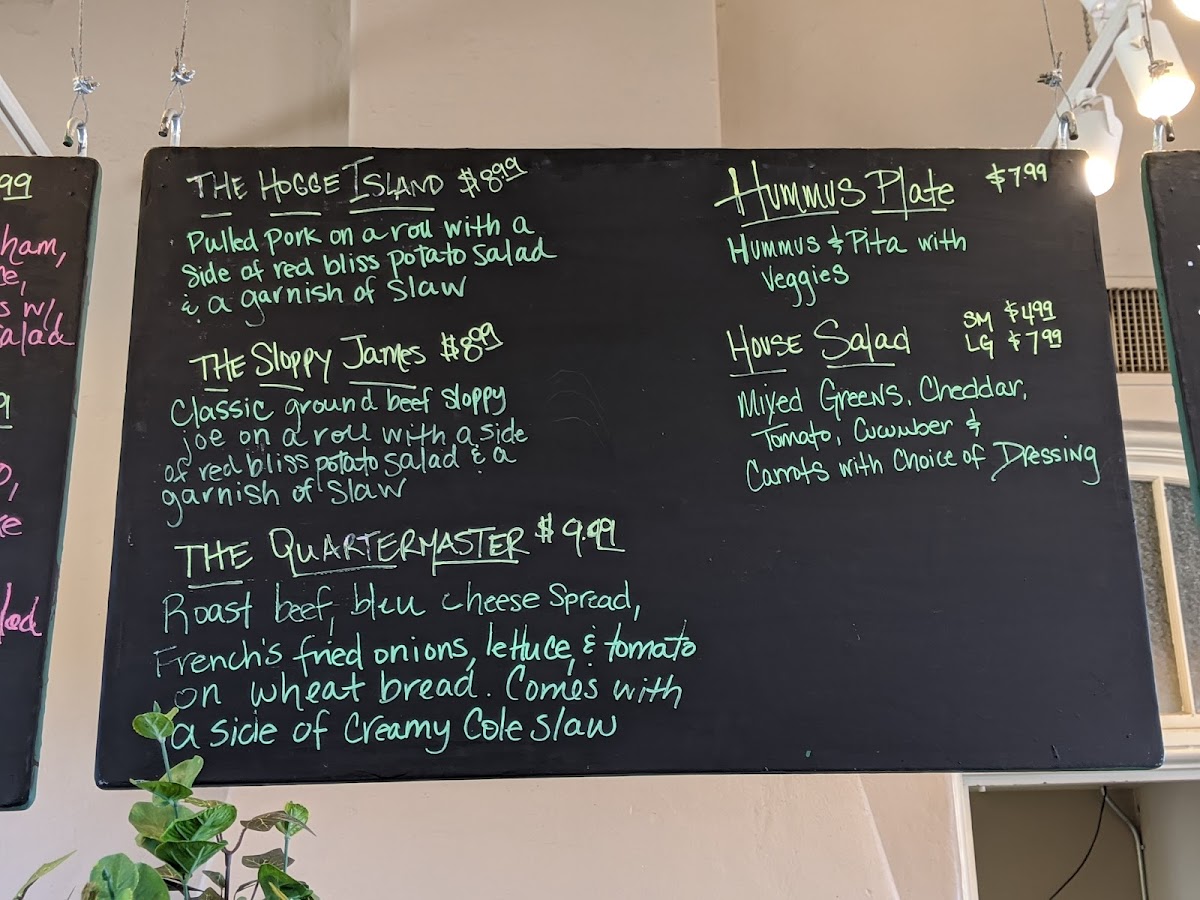 99
ham,
s w/
Salad
THE HOGGE ISLAND $8.99
Pulled Pork on a roll with a
Side of red bliss potato Salad
& a garnish of Slaw
THE Sloppy James $8.99
Classic ground beef sloppy
joe on a roll with a side
of red bliss potato Salad & a
garnish of Slaw
THE QUARTERMASTER $9.99
Roast beef, bleu cheese Spread,
French's fried onions, lettuce, & tomato
on wheat bread. Comes with
a side of Creamy Cole Slaw
Hummus Plate $7.99
Hummus & Pita with
Veggies
House Salad SM $4.99
LG $7.99
Mixed Greens, Cheddar,
Tomato, Cucumber &
Carrots with Choice of Dressing